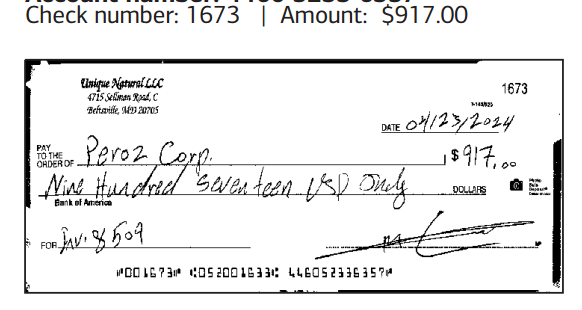 Check number: 1673 | Amount: $917.00
Unique Natural LLC
4715 Sellman Road, C
Beltsville, MD 20705
1673
7-163/520
DATE 04/23/2024
PAY TO THE ORDER OF Peroz Corp. $ 917.00
Nine Hundred Seventeen USD Only DOLLARS
Bank of America
FOR Inv. 8509
⑈001673⑈ ⑆052001633⑆ 446052336357⑈